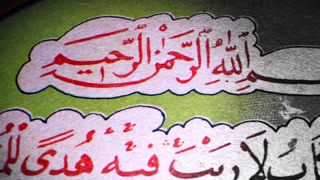 ـمِ اللّٰهِ الرَّحْمٰنِ الرَّحِيمِ
ـابُ لَا رَيْبَ فِيْهِ هُدًى لِّلْمُـ